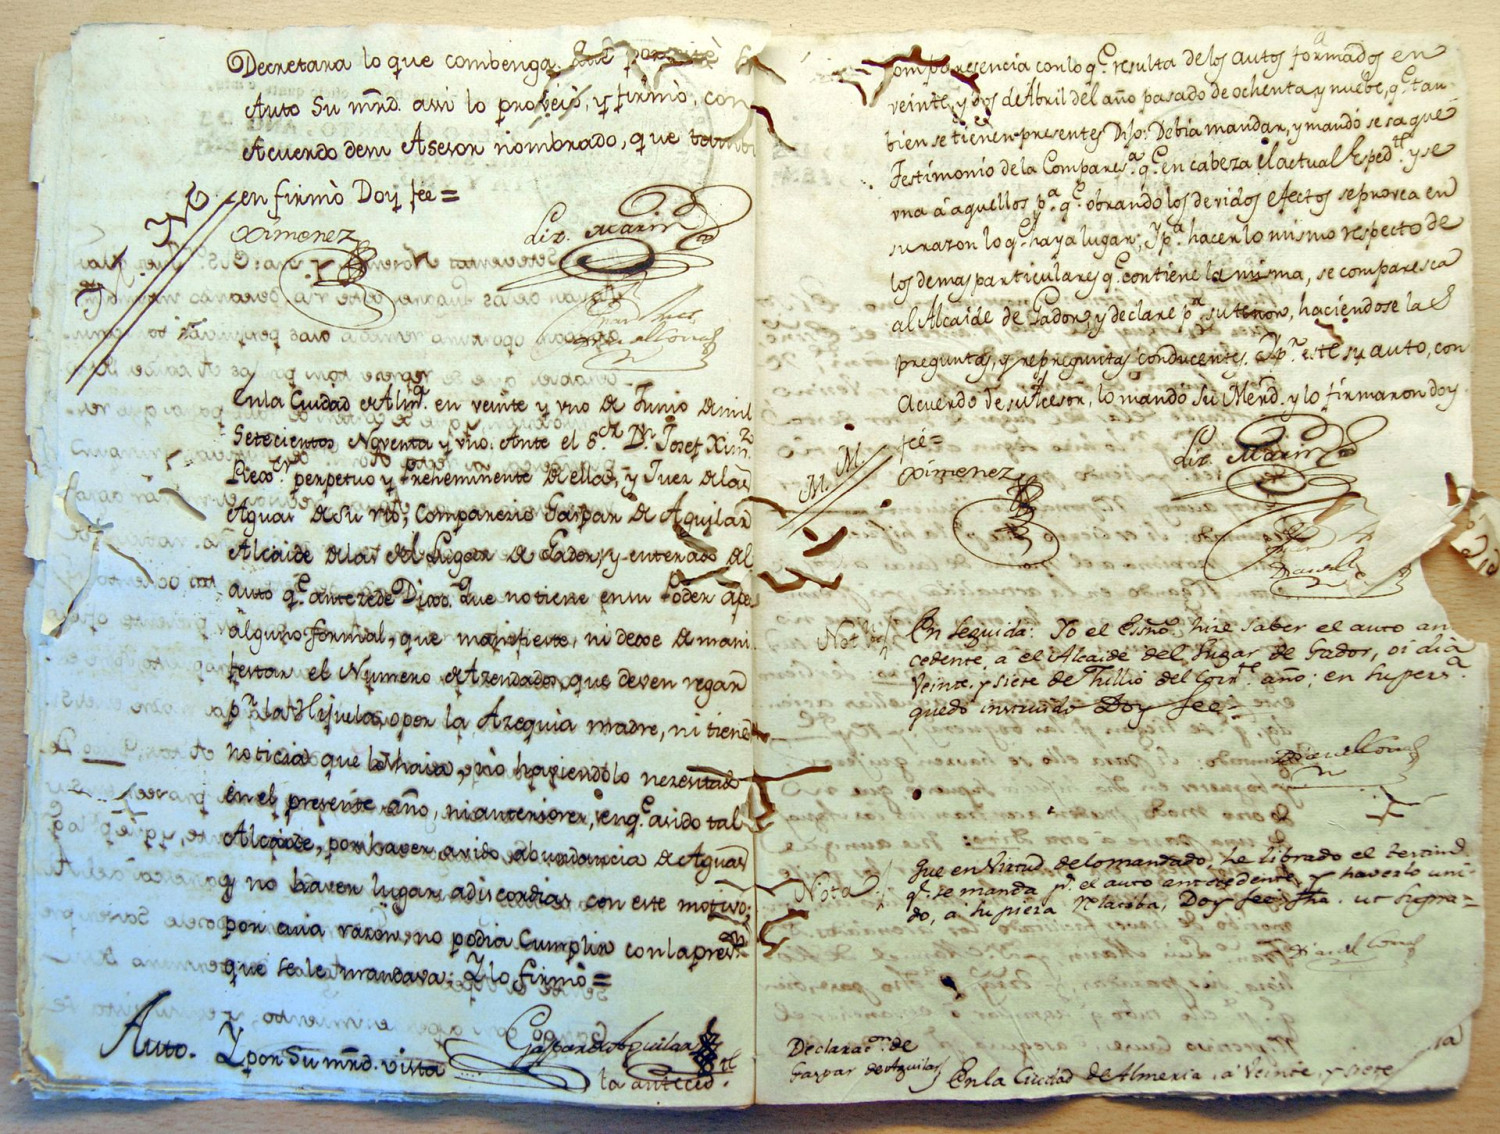 Decretara lo que combenga
Auto Su mrd. assi lo proveiò, y firmò, con
Acuerdo demi Asesor nombrado, que tambi
en firmò Doy fee=
Ximenez
Liz. Marin
Enla Ciudad de Almª. en veinte y uno de Junio de mil
Setecientos Noventa y uno. Ante el Sor. Dn. Josef Ximz
perpetuo y Preheminente de ella, y Juez delas
Aguas de su Rio, Comparecio Gaspar de Aguilar
Alcaide delas del Lugar de Gador, y enterado del
auto qe. antezede Dijo: Que no tiene en su Poder apeo
alguno formal, que manifieste, ni deve de mani
festar el Numero de Azendados, que deven regar
pr. la Hijuela, o por la Azequia madre, ni tiene
noticia que lo haia, no haviendolo nezesitado
en el presente año, ni anteriores, en qe. asido tal
Alcaide, por haver avido abundancia de Aguas
y no haver lugar, a discordias con este motivo;
por cuia razon, no podia Cumplir con la
que se le mandava: Y lo firmò=
Gaspar de Aguilar
Auto. Y por Su mrd. vista
la anteced.te
Comparesencia con lo qe. resulta de los autos formados en
veinte, y dos de Abril del año pasado de ochenta y nuebe, qe. tan
bien se tienen presentes Dijo: Debia mandar, y mandó se saque
Testimonio de la Comparesª. qe. en cabeza el actual Espedte. y se
una á aquellos pª. qe. obrando los devidos efectos se provea en
su razon lo qe. haya lugar; y pª. hacer lo mismo respecto de
los demas particulares qe. contiene la misma, se comparesca
al Alcaide de Gador, y declare pr. su tenor, haciendose las
preguntas, y repreguntas conducentes. Y pr. este su auto, con
Acuerdo de su Acesor, lo mandó Su Merd. y lo firmaron doy
fee=
Ximenez
Liz. Marin
M. M.
En Seguida: Yo el Essno. hize saber el auto an
cedente, á el Alcaide del Lugar de Gador, oi dia
Veinte y siete de Jullio del corrte. año; en su persª.
quedo instruido Doy fee=
Nota
Que en Virtud de lo mandado, he librado el testimº
qe. se manda pr. el auto antecedente, y haverlo uni
do, á su pieza Doy fee, fha. ut supra=
Declaracon. de
Gaspar de Aguilar
En la Ciudad de Almeria, á Veinte, y siete